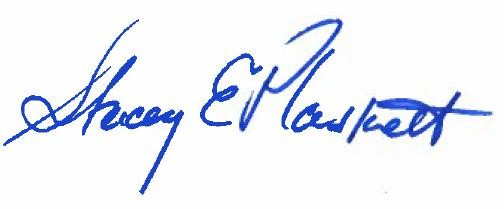 Stacey E Plaskett